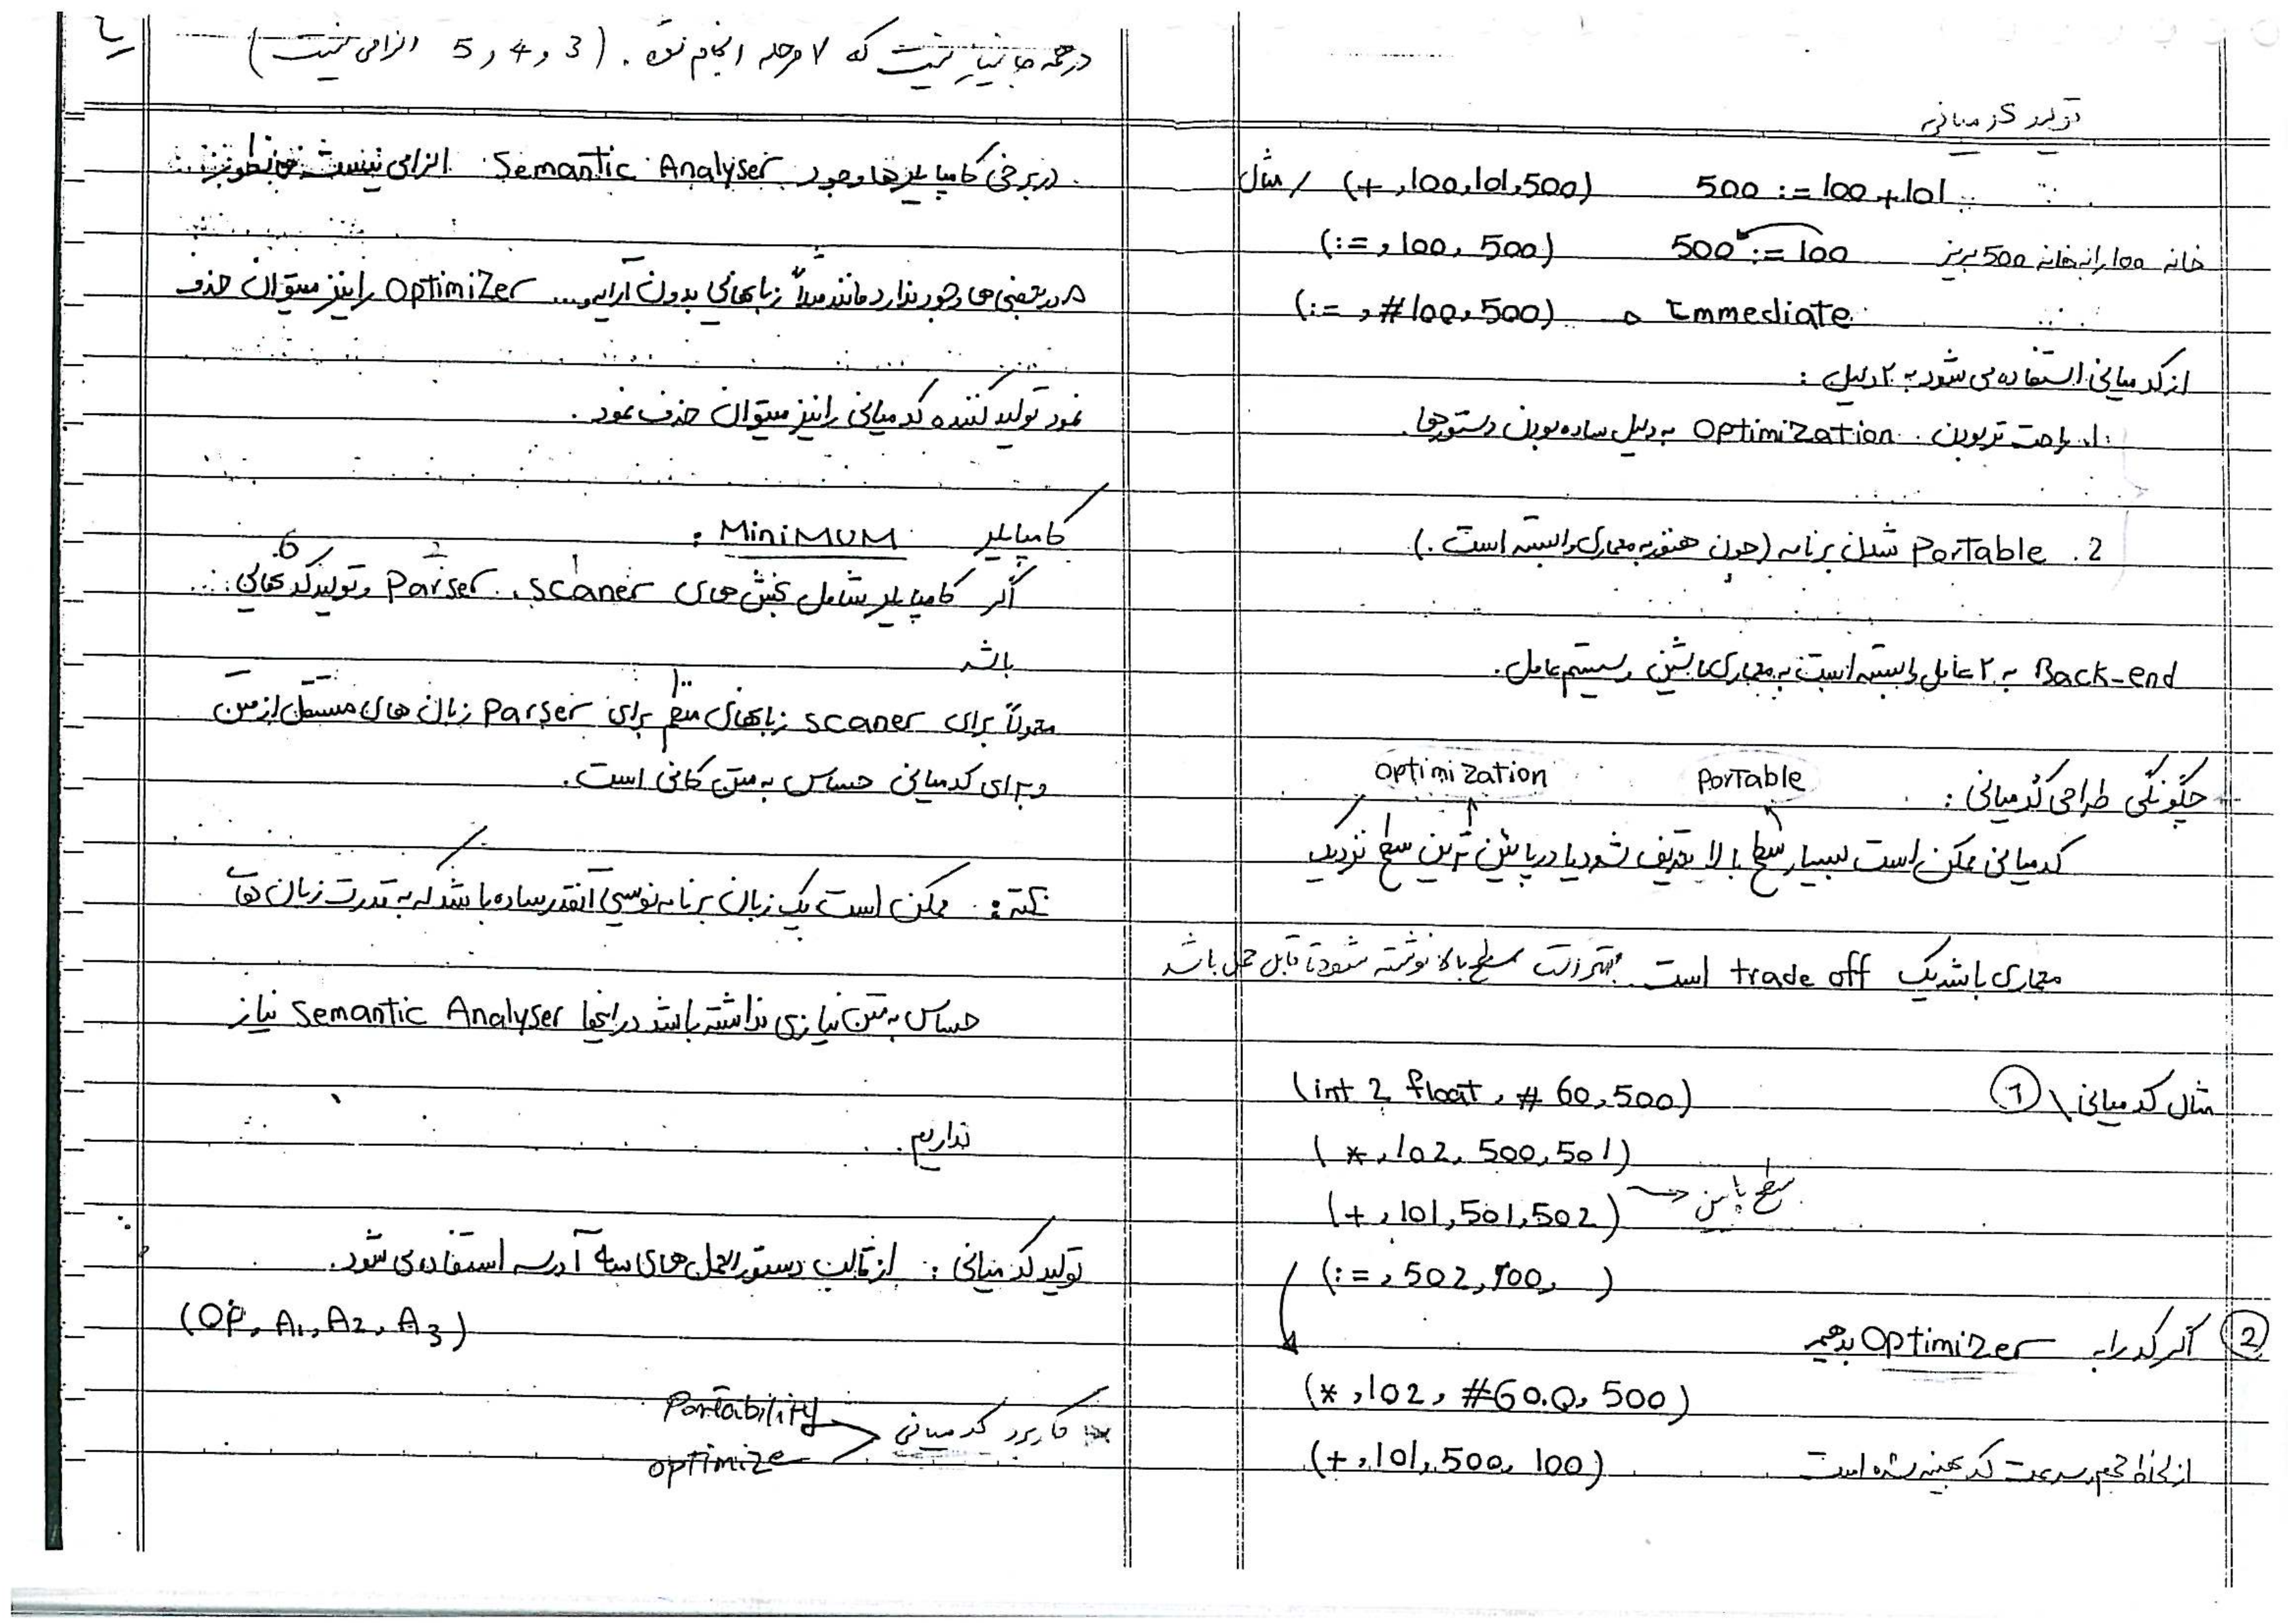 در همه جا نیاز نیست که ۷ مرحله انجام شود. (3 و 4 و 5 الزامی نیست)
در برخی کامپایلرها وجود Semantic Analyser الزامی نیست همانطور
در بعضی ها وجود ندارد مانند مثلاً زبانهای بدون آرایه و... Optimizer را نیز میتوان حذف
نمود تولید کننده کد میانی را نیز میتوان حذف نمود.
کامپایلر MiniMUM :
1 2 6
اگر کامپایلر شامل بخش های Parser ، Scaner و تولید کد نهایی
باشد
معمولاً برای Scaner زبانهای منظم برای Parser زبان های مستقل از متن
و برای کد میانی حساس به متن کافی است.
نکته: ممکن است یک زبان برنامه نویسی آنقدر ساده باشد که به قدرت زبان های
حساس به متن نیازی نداشته باشد در اینجا Semantic Analyser نیاز
نداریم.
تولید کد میانی : از قالب دستورالعمل های سه آدرسه استفاده می شود.
(OP, A1, A2, A3)
کاربرد کد میانی
Portability
optimize
تولید کد میانی
مثال / (+, 100, 101, 500) 500 := 100 + 101
(:=, 100, 500) 500 := 100 خانه 100 را به خانه 500 بریز
(:=, #100, 500) → Immediate
از کد میانی استفاده می شود به ۲ دلیل :
1. راحت تر بودن Optimization به دلیل ساده بودن دستورها.
2. PorTable شدن برنامه (چون هنوز به معماری وابسته است.)
Back-end به ۲ عامل وابسته است به معماری ماشین و سیستم عامل.
چگونگی طراحی کد میانی :
optimization PorTable
کد میانی ممکن است بسیار سطح بالا تعریف شود یا در پائین ترین سطح نزدیک
معماری باشد یک trade off است. بهتر است سطح بالا نوشته شود تا قابل حمل باشد
مثال کد میانی \ ① (int 2 float, # 60, 500)
(*, 102, 500, 501)
(+, 101, 501, 502) → سطح پایین
(:=, 502, 100, )
② اگر کد را به Optimizer بدهیم
(*, 102, #60.0, 500)
(+, 101, 500, 100) از لحاظ حجم و سرعت کد بهینه شده است